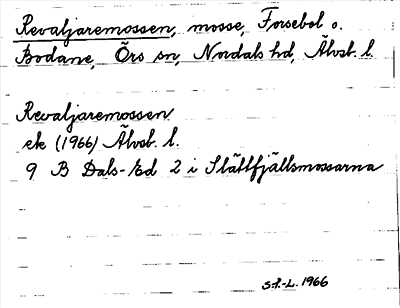 Revaljaremossen, mosse, Forsebol o.
Bodane, Örs sn, Nordals hd, Älvsb. l.
Revaljaremossen
ek (1966) Älvsb. l.
9 B Dals-Ed 2 i Slättfjällsmossarna
S.F.-L. 1966